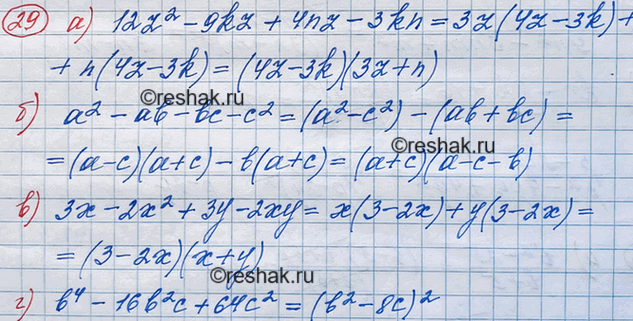 29 а) 12z² - 9kz + 4nz - 3kn = 3z(4z - 3k) +
+ n(4z - 3k) = (4z - 3k)(3z + n)
©reshak.ru
б) a² - ab - bc - c² = (a² - c²) - (ab + bc) =
= (a - c)(a + c) - b(a + c) = (a + c)(a - c - b)
©reshak.ru
в) 3x - 2x² + 3y - 2xy = x(3 - 2x) + y(3 - 2x) =
= (3 - 2x)(x + y)
©reshak.ru
г) b⁴ - 16b²c + 64c² = (b² - 8c)²